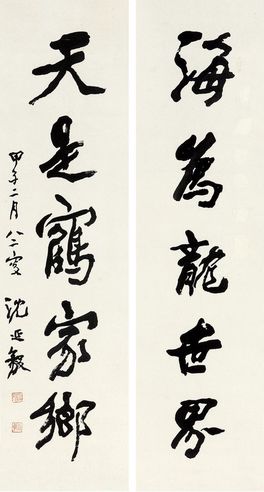 海為龍世界
天是鶴家鄉
甲子二月 八二叟
沈延毅